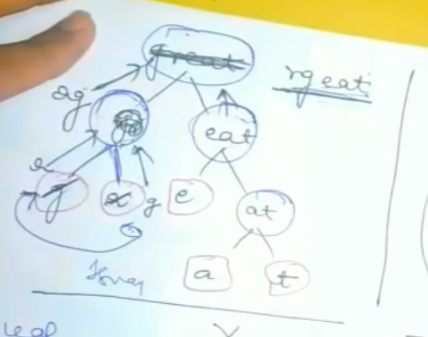 great
rgeat
rg
eat
r
g
x
g
e
at
a
t
leaf